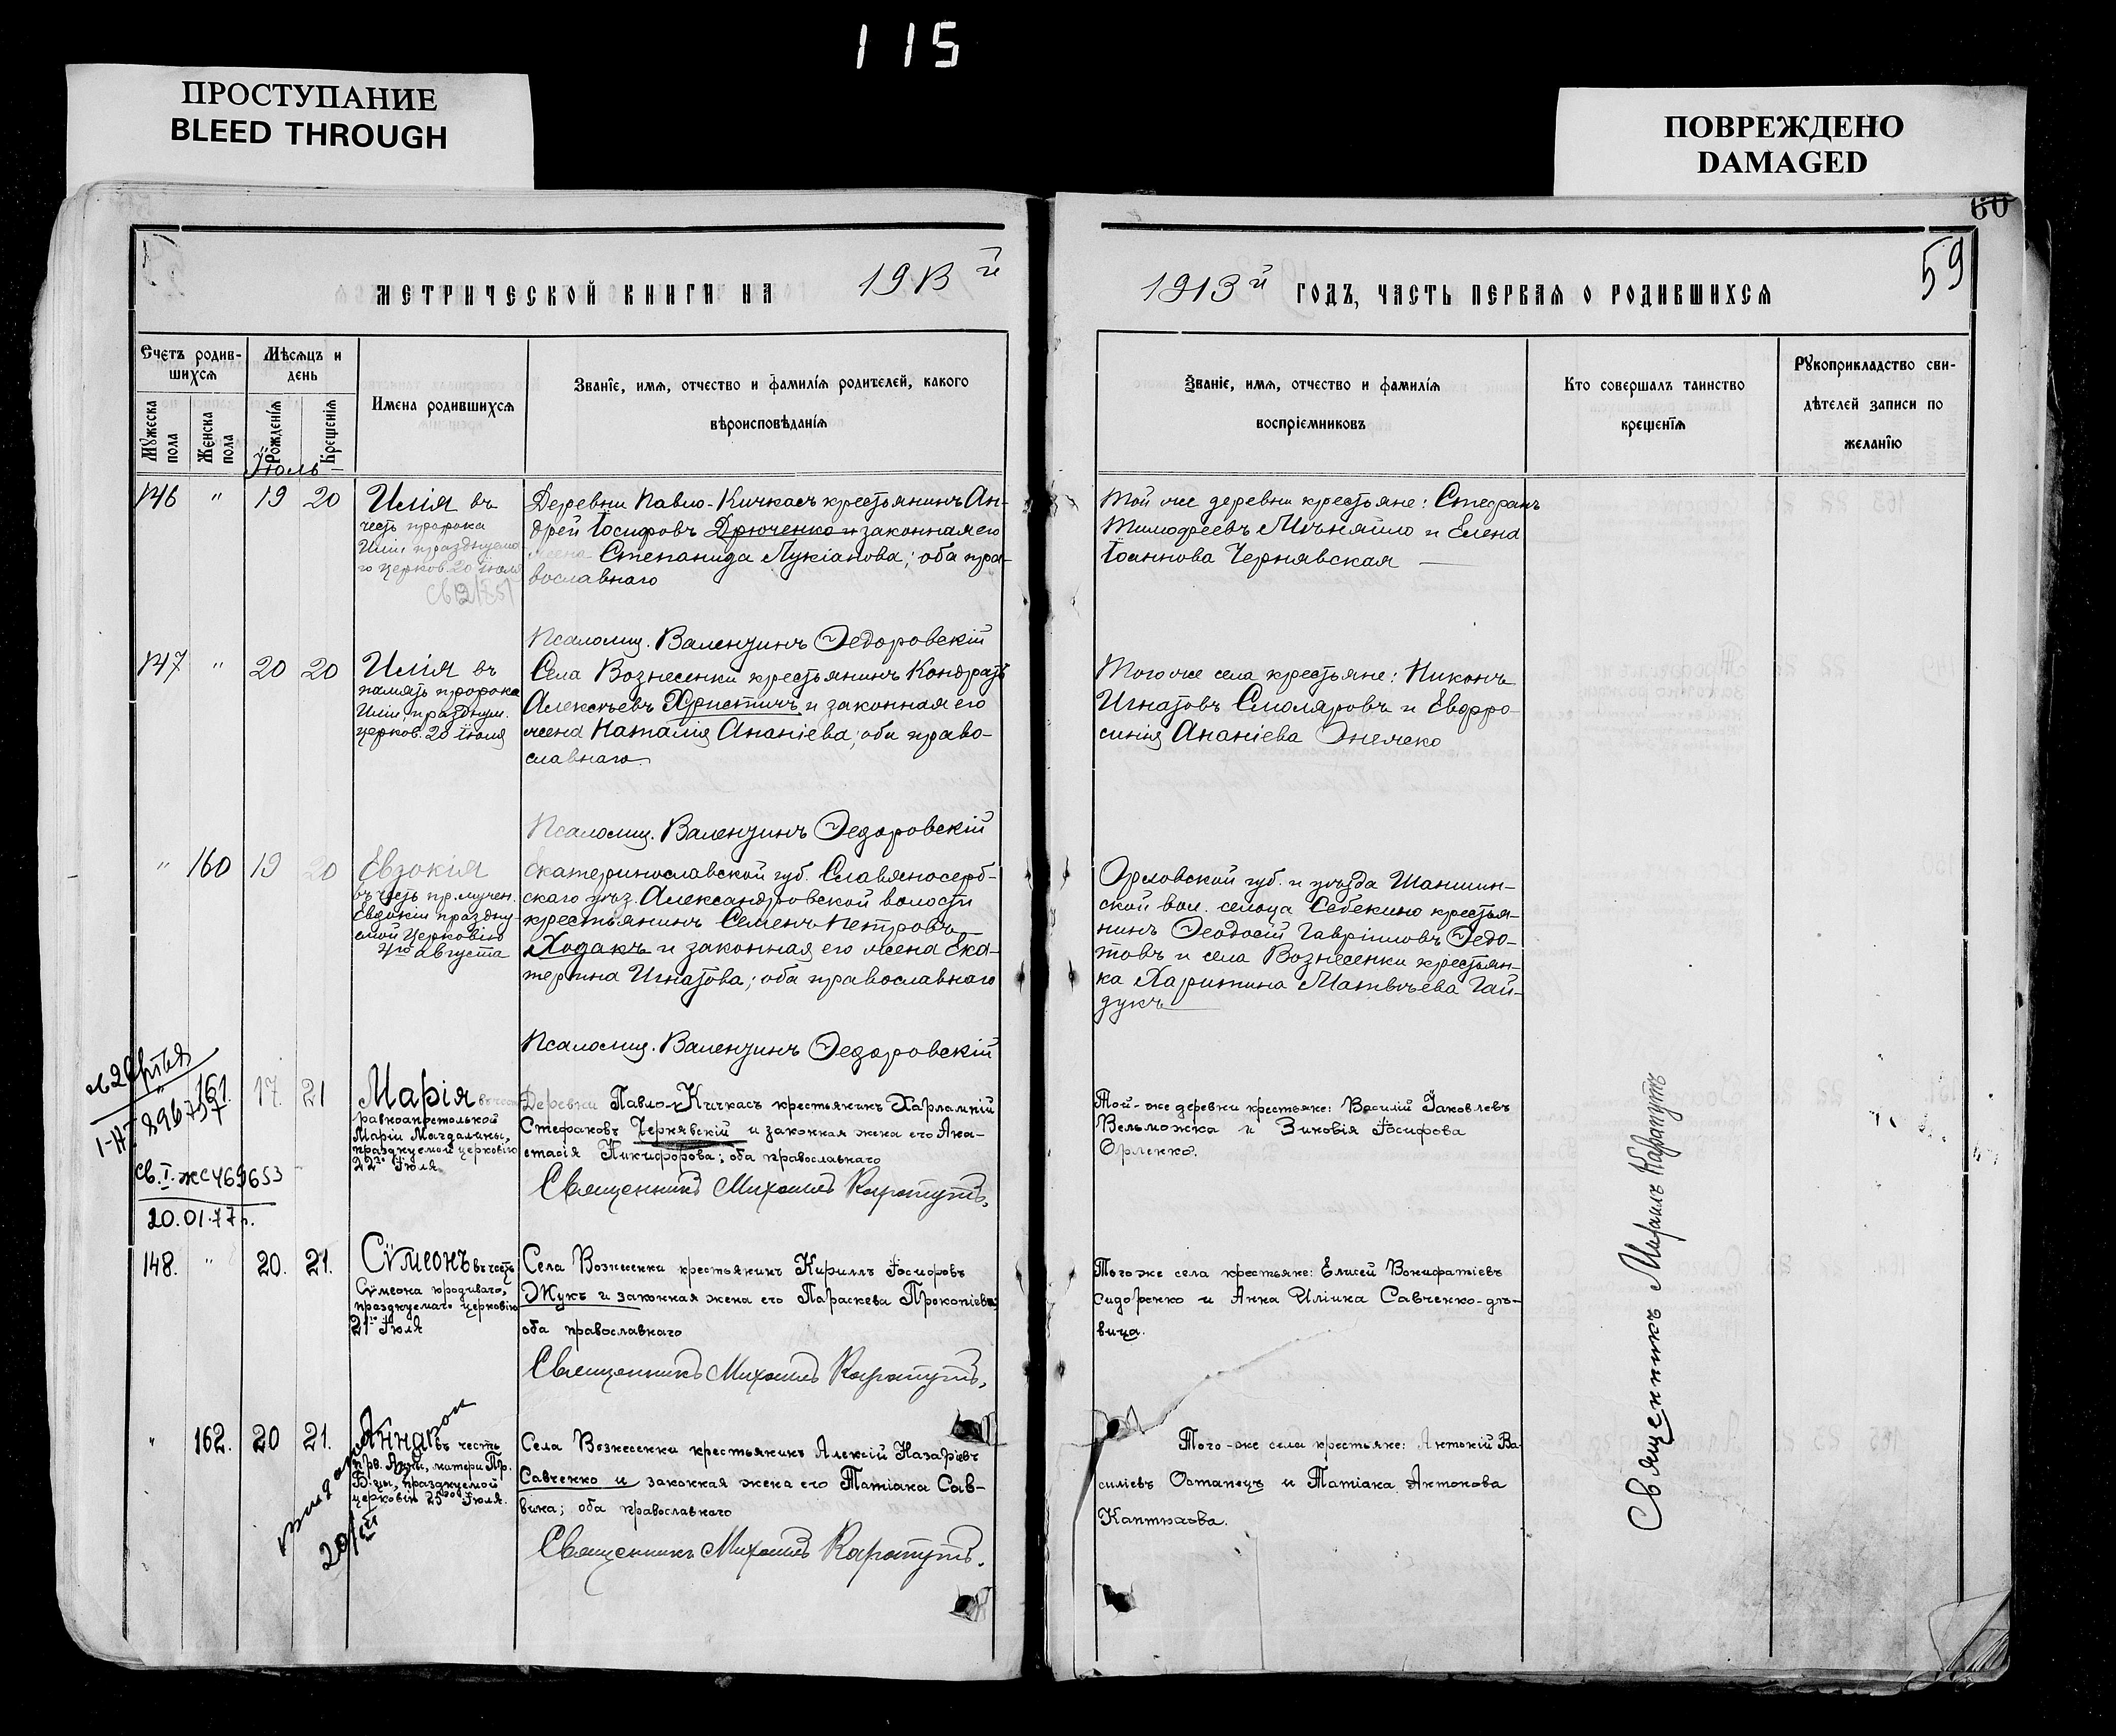 115
ПРОСТУПАНИЕ
BLEED THROUGH
ПОВРЕЖДЕНО
DAMAGED
60
59
МЕТРИЧЕСКОЙ КНИГИ НА 1913й
1913й ГОДЪ, ЧАСТЬ ПЕРВАЯ О РОДИВШИХСЯ
Счетъ родив-
шихся
Мужеска пола
Женска пола
Мѣсяцъ и
день
Рожденія
Крещенія
Имена родившихся
Званіе, имя, отчество и фамилія родителей, какого
вѣроисповѣданія
Званіе, имя, отчество и фамилія
воспріемниковъ
Кто совершалъ таинство
крещенія
Рукоприкладство сви-
дѣтелей записи по
желанію
Іюль
146 " 19 20
Илія въ
честь пророка
Иліи, празднуема
го церков. 20 іюля
Деревни Павло-Кичкасъ крестьянинъ Ан-
дрей Іосифовъ Дрюченко и законная его
жена Степанида Лукіанова; оба пра-
вославнаго
Псаломщ. Валентинъ Федоровскій
Той же деревни крестьяне: Стефанъ
Тимофеевъ Мѣняйло и Елена
Іоаннова Чернявская
147 " 20 20
Илія въ
память пророка
Иліи, празднуем.
церков. 20 іюля
Села Вознесенки крестьянинъ Кондратъ
Алексѣевъ Христичъ и законная его
жена Наталія Ананіева; оба право-
славнаго
Псаломщ. Валентинъ Федоровскій
Того же села крестьяне: Никонъ
Игнатовъ Столяровъ и Евфро-
синія Ананіева
" 160 19 20
Евдокія
въ честь пр. мучен.
Евдокіи праздну-
емой Церковію
4го августа
Екатеринославской губ. Славяносерб-
скаго уѣз. Александровской волости
крестьянинъ Семенъ Петровъ
Ходакъ и законная его жена Ека-
терина Игнатова; оба православнаго
Псаломщ. Валентинъ Федоровскій
Орловской губ. и уѣзда
ской вол. сельца Себекино крестья-
нинъ Феодосій Гавріиловъ Федо-
товъ и села Вознесенки крестьян-
ка Харитина Матвѣева Гай-
дукъ
" 161. 17. 21
Марія въ честь
равноапостольной
Маріи Магдалины,
празднуемой церковію
22го Іюля
Деревни Павло-Кичкасъ крестьянинъ Харлампій
Стефановъ Чернявскій и законная жена его Ана-
стасія Никифорова; оба православнаго
Священникъ Михаилъ Карапутъ.
Той-же деревни крестьяне: Василій Іаковлевъ
Вельможка и Зиновія Іосифова
Орленко.
896757
Св. I-ЖС 469653
20.01.77г.
148. " 20. 21.
Сѵмеонъ въ честь
Сѵмеона юродиваго,
празднуемаго церковію
21го Іюля
Села Вознесенки крестьянинъ Кириллъ Іосифовъ
Жукъ и законная жена его Параскева Прокопіева;
оба православнаго
Священникъ Михаилъ Карапутъ.
Того же села крестьяне: Елисей Вонифатіевъ
Сидоренко и Анна Иліина Савченко-дѣ-
вица.
" 162. 20 21.
Анна въ честь
прв. Анны, матери Пр.
Б-цы, празднуемой
церковію 25го Іюля.
Села Вознесенки крестьянинъ Алексій Назаріевъ
Савченко и законная жена его Татіана Сав-
вина; оба православнаго
Священникъ Михаилъ Карапутъ.
Того-же села крестьяне: Антоній Ва-
силіевъ Остапецъ и Татіана Антонова
Каптюхова.
Священникъ Михаилъ Карапутъ